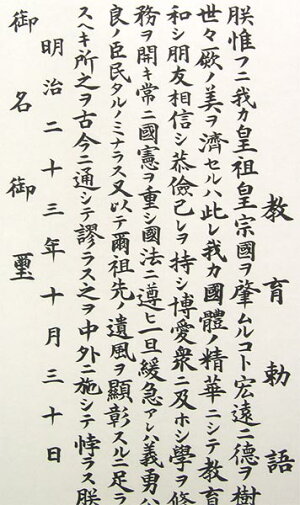 教育勅語
朕惟フニ我カ皇祖皇宗國ヲ肇ムルコト宏遠ニ德ヲ樹
世々厥ノ美ヲ濟セルハ此レ我カ國體ノ精華ニシテ教育
和シ朋友相信シ恭儉己レヲ持シ博愛衆ニ及ホシ學ヲ修
務ヲ開キ常ニ國憲ヲ重シ國法ニ遵ヒ一旦緩急アレハ義勇公
良ノ臣民タルノミナラス又以テ爾祖先ノ遺風ヲ顯彰スルニ足ラ
スヘキ所之ヲ古今ニ通シテ謬ラス之ヲ中外ニ施シテ悖ラス朕
明治二十三年十月三十日
御名御璽